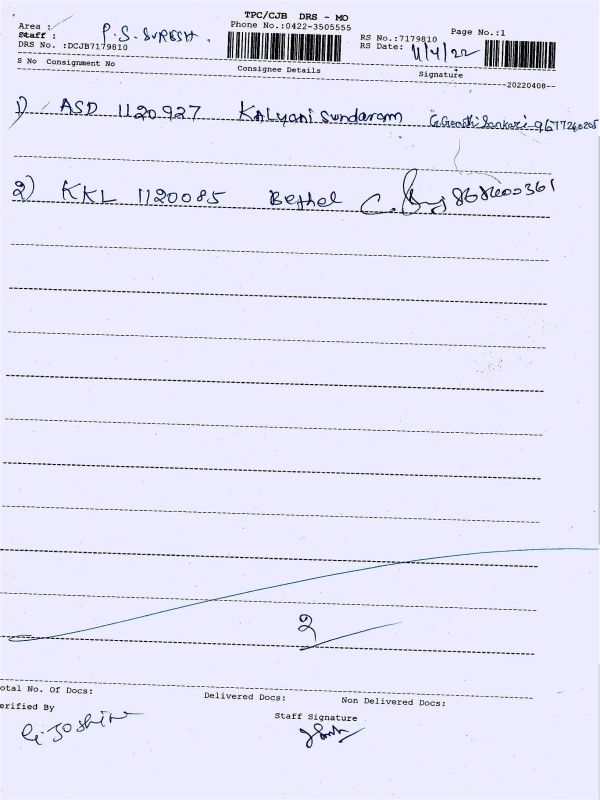 TPC/CJB DRS - MO
Area :
Phone No.:0422-3505555
Page No.:1
Staff : P.S. SURESH.
RS No.:7179810
DRS No. :DCJB7179810
RS Date: 11/4/22
S No Consignment No Consignee Details Signature
--20220408--
1) ASD 1120927 Kalyani Sundaram 9677260205
2) KKL 1120085 Bethel C.
2
otal No. Of Docs: Delivered Docs: Non Delivered Docs:
erified By Staff Signature
G. Joshin